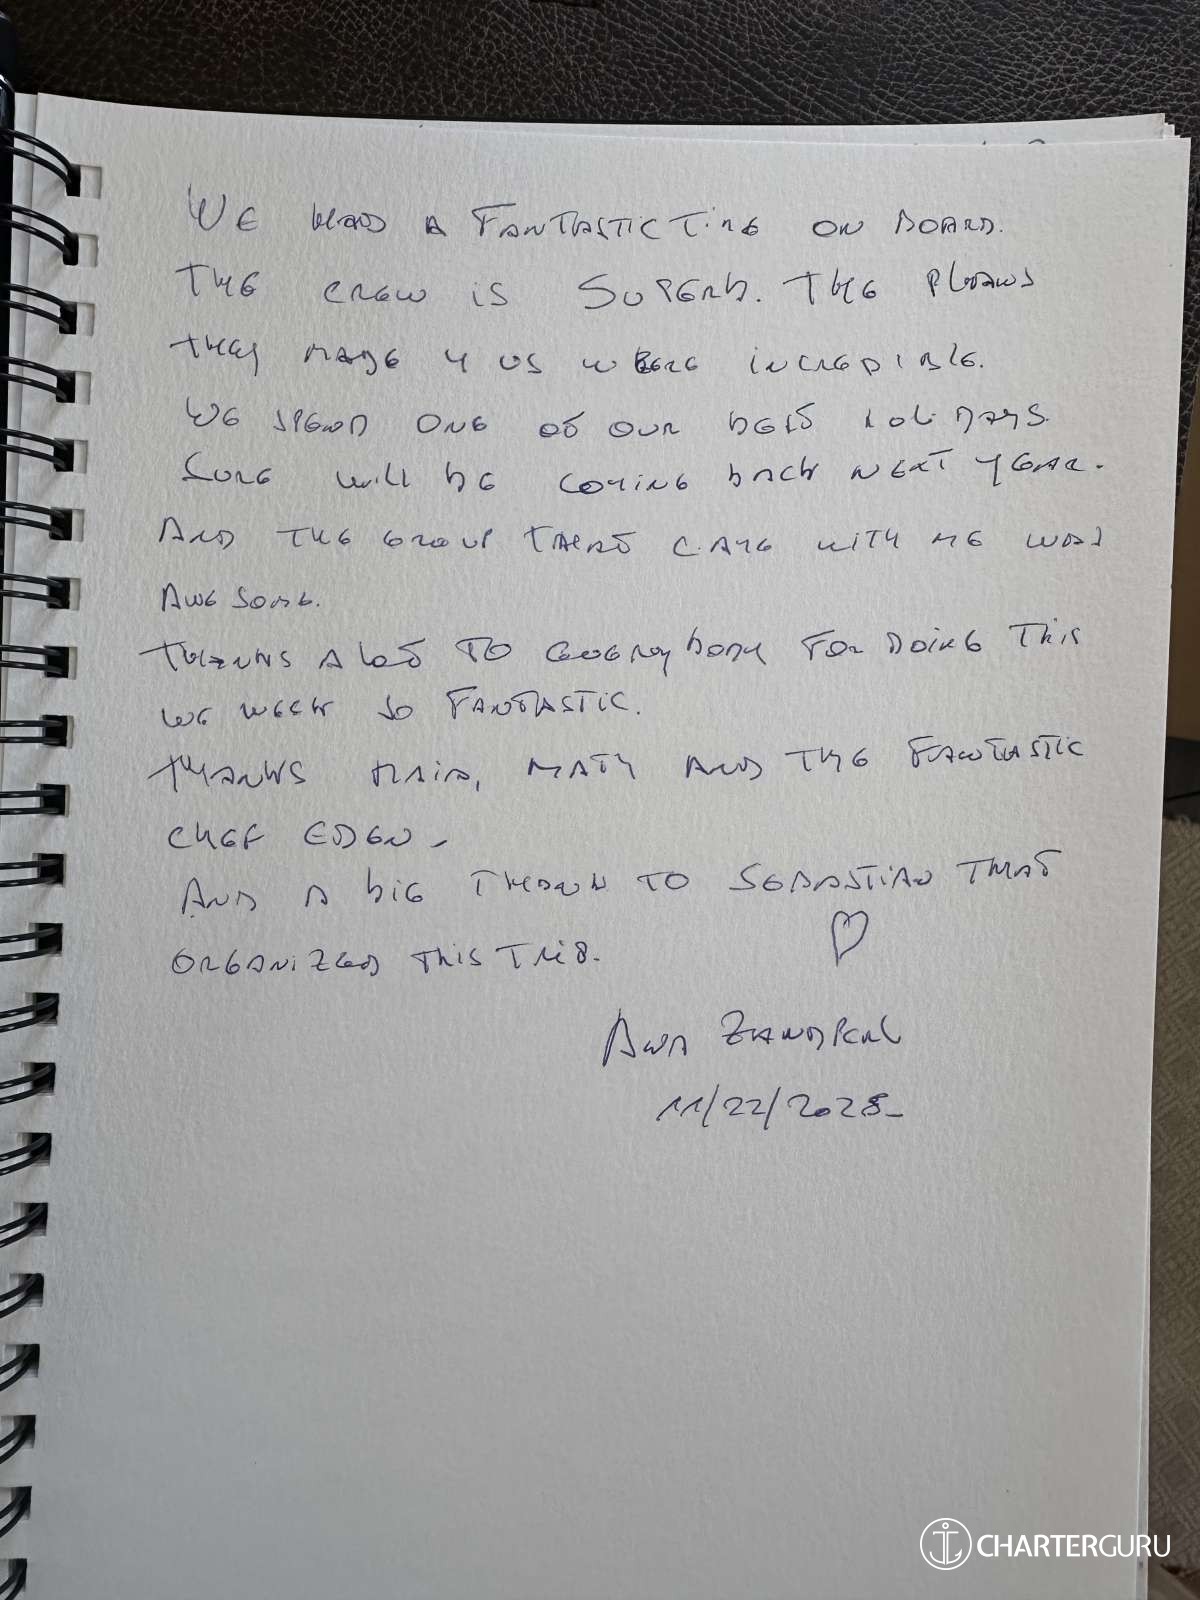 WE HAD A FANTASTIC TIME ON BOARD.
THE CREW IS SUPERB. THE PLANS
THEY MADE 4 US WERE INCREDIBLE.
WE SPEND ONE OF OUR BEST HOLIDAYS.
SURE WILL BE COMING BACK NEXT YEAR.
AND THE GROUP THAT CAME WITH ME WAS
AWESOME.
THANKS A LOT TO EVERYBODY FOR DOING THIS
WE WEEK SO FANTASTIC.
THANKS MAIA, MATY AND THE FANTASTIC
CHEF EDEN -
AND A BIG THANK TO SEBASTIAN THAT
ORGANIZED THIS TRIB.
11/22/2025-
CHARTERGURU